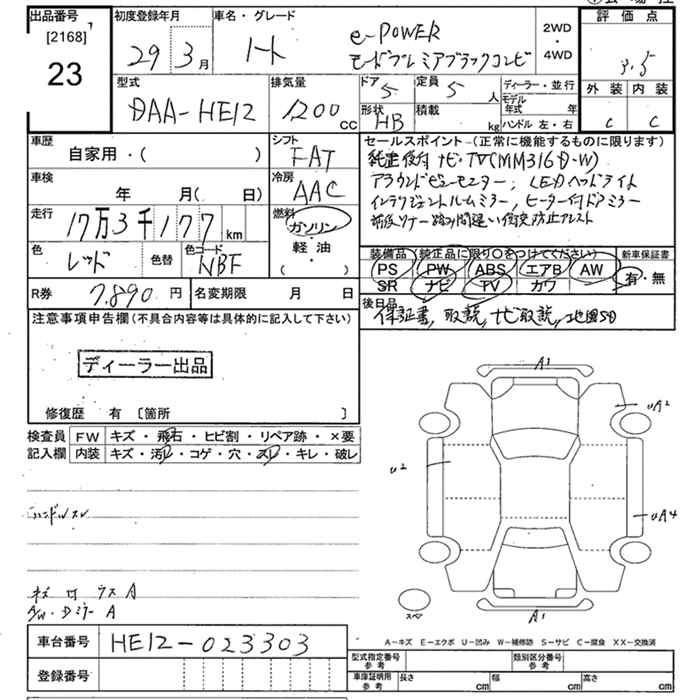 出品番号
[2168]
23
初度登録年月
29年 3月
車名・グレード
ノート
e-POWER
モードプレミアブラックコンビ
2WD
4WD
評価点
3.5
外装 内装
C C
型式
DAA-HE12
排気量
1200 cc
ドア
5
定員
5 人
形状
HB
積載
kg
ディーラー・並行
モデル年式 年
ハンドル 左・右
車歴
自家用・( )
シフト
FAT
車検
年 月(日)
冷房
AAC
走行
17万3千177km
燃料
ガソリン・軽油・( )
色
レッド
色替
色コード
NBF
R券
7,890円
名変期限 月 日
セールスポイント(正常に機能するものに限ります)
純正後付ナビ・TV(MM316D-W)
アラウンドビューモニター, LEDヘッドライト
インテリジェントルームミラー, ヒーター付ドアミラー
前後ソナー踏み間違い衝突防止アシスト
装備品(純正品に限り○をつけてください)
PS PW ABS エアB AW
SR ナビ TV カワ
新車保証書
有・無
後日品
保証書, 取説, ナビ取説, 地図SD
注意事項申告欄(不具合内容等は具体的に記入して下さい)
ディーラー出品
修復歴 有 [箇所 ]
検査員記入欄
FW キズ・飛石・ヒビ割・リペア跡・×要
内装 キズ・汚レ・コゲ・穴・スレ・キレ・破レ
ハンドルスレ
A/W・Dミラー A
A1
UA2
U2
UA4
スペア
A1
A-キズ E-エクボ U-凹み W-補修跡 S-サビ C-腐食 XX-交換済
車台番号
HE12-023303
登録番号
型式指定番号 参考
類別区分番号 参考
車庫証明用 参考
長さ cm
幅 cm
高さ cm